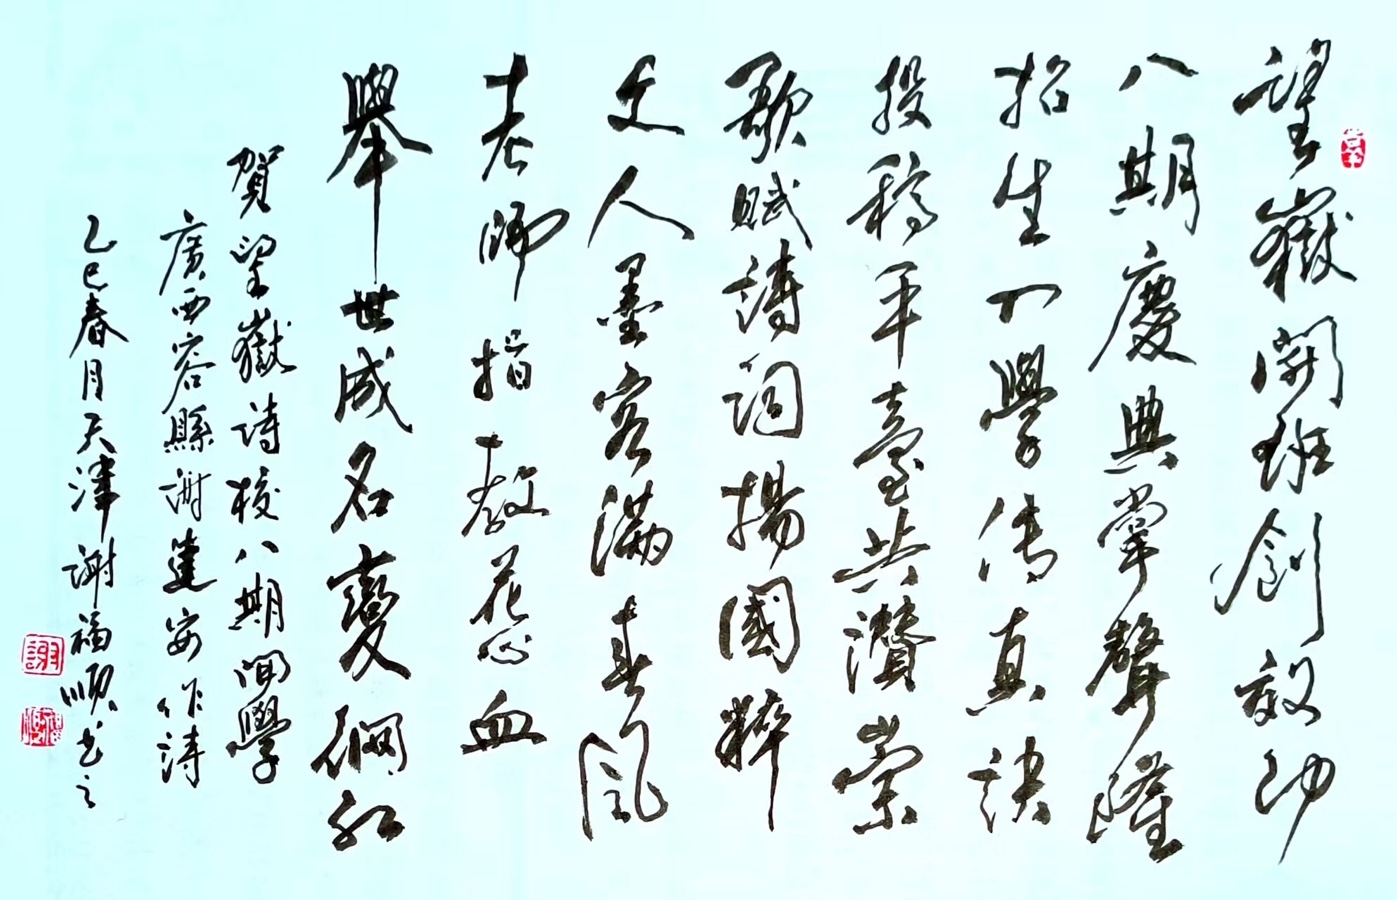 望嶽開班創效功
八期慶典掌聲隆
招生入學傳真訣
投稿平臺共讚崇
歌賦詩詞揚國粹
文人墨客滿春風
老師指教花心血
舉世成名變網紅
賀望嶽詩校八期開學
廣西容縣謝達安作詩
乙巳春月天津謝福順书之
謝